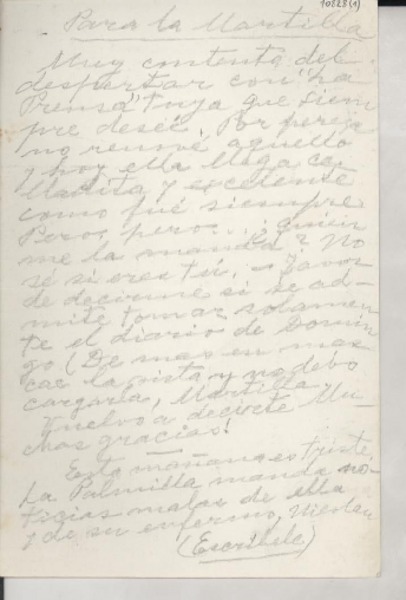 10828(1)
Para la Martilla
Muy contenta del
despertar con "La
Prensa" tuya que siem
pre deseé. Por pereja
no renové aquello
y hoy ella llega ca
lladita y excelente
como fué siempre
Pero, pero... ¿quien
me la manda? No
sé si eres tú. - Favor
de decirme si se ad-
mite tomar solamen
te el diario de Domin
go (De mas en mas
cae la vista y no debo
cargarla, Martilla.
Vuelvo a decirte Mu-
chas gracias!
Esta mañana es triste.
La Palmilla manda no-
ticias malas de ella
y de su enfermo, Nicolau
(Escribele)